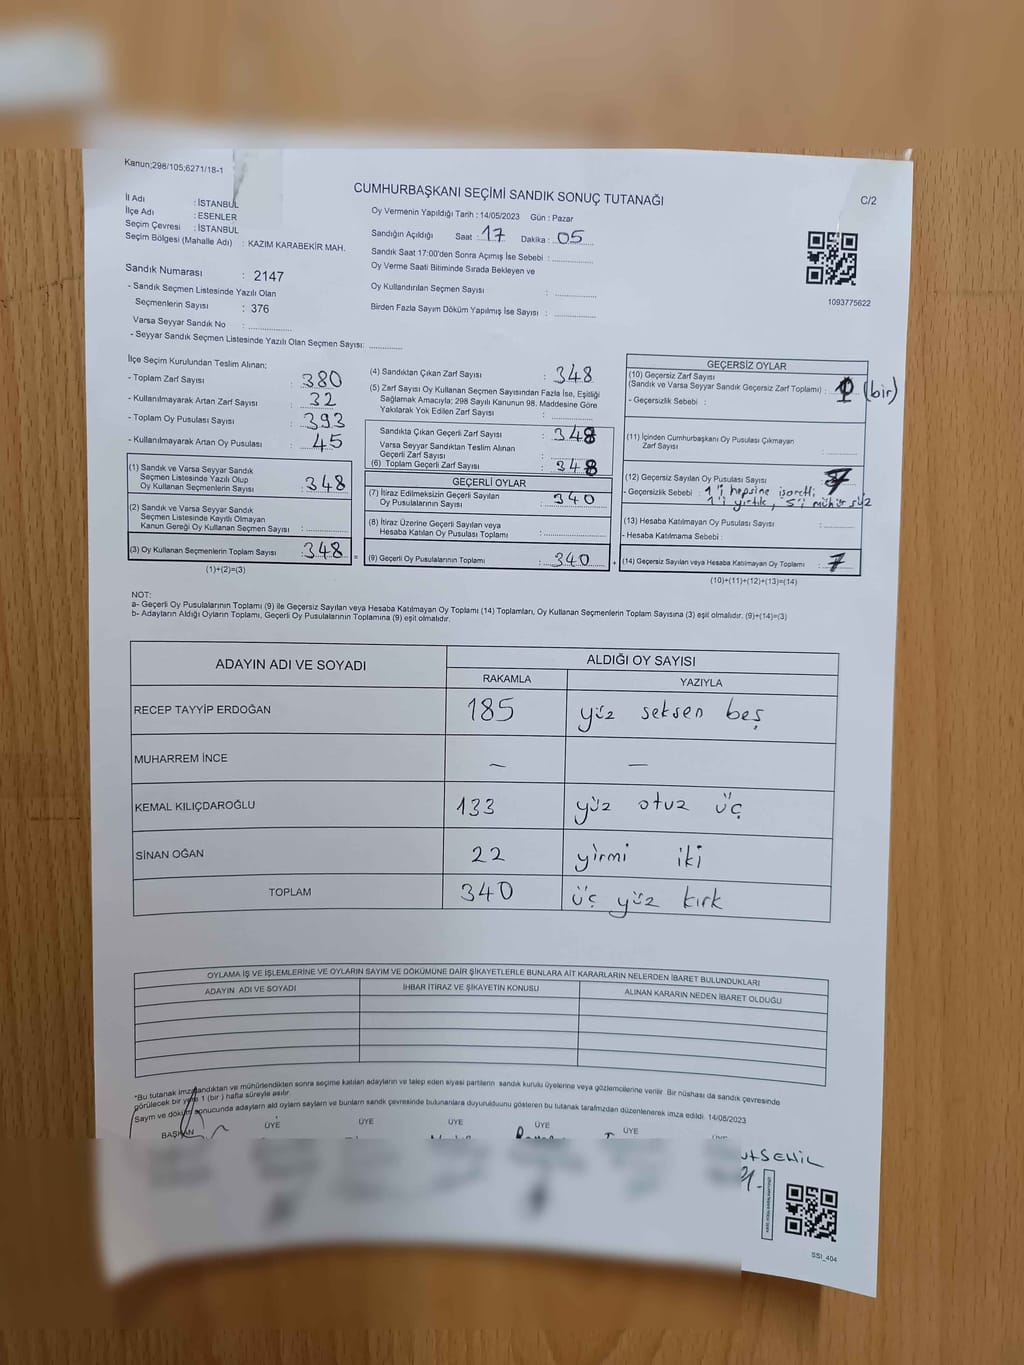 Kanun;298/105;6271/18-1
CUMHURBAŞKANI SEÇİMİ SANDIK SONUÇ TUTANAĞI
C/2
İl Adı : İSTANBUL
İlçe Adı : ESENLER
Seçim Çevresi : İSTANBUL
Seçim Bölgesi (Mahalle Adı) : KAZIM KARABEKİR MAH.
Sandık Numarası : 2147
- Sandık Seçmen Listesinde Yazılı Olan
Seçmenlerin Sayısı : 376
Varsa Seyyar Sandık No :
- Seyyar Sandık Seçmen Listesinde Yazılı Olan Seçmen Sayısı:
Oy Vermenin Yapıldığı Tarih : 14/05/2023 Gün : Pazar
Sandığın Açıldığı Saat : 17 Dakika : 05
Sandık Saat 17:00'den Sonra Açımış İse Sebebi :
Oy Verme Saati Bitiminde Sırada Bekleyen ve
Oy Kullandırılan Seçmen Sayısı :
Birden Fazla Sayım Döküm Yapılmış İse Sayısı :
1093775622
İlçe Seçim Kurulundan Teslim Alınan;
- Toplam Zarf Sayısı : 380
- Kullanılmayarak Artan Zarf Sayısı : 32
- Toplam Oy Pusulası Sayısı : 393
- Kullanılmayarak Artan Oy Pusulası : 45
(1) Sandık ve Varsa Seyyar Sandık
Seçmen Listesinde Yazılı Olup
Oy Kullanan Seçmenlerin Sayısı : 348
(2) Sandık ve Varsa Seyyar Sandık
Seçmen Listesinde Kayıtlı Olmayan
Kanun Gereği Oy Kullanan Seçmen Sayısı :
(3) Oy Kullanan Seçmenlerin Toplam Sayısı : 348
(1)+(2)=(3)
(4) Sandıktan Çıkan Zarf Sayısı : 348
(5) Zarf Sayısı Oy Kullanan Seçmen Sayısından Fazla İse, Eşitliği
Sağlamak Amacıyla; 298 Sayılı Kanunun 98. Maddesine Göre
Yakılarak Yok Edilen Zarf Sayısı :
Sandıkta Çıkan Geçerli Zarf Sayısı : 348
Varsa Seyyar Sandıktan Teslim Alınan
Geçerli Zarf Sayısı :
(6) Toplam Geçerli Zarf Sayısı : 348
GEÇERLİ OYLAR
(7) İtiraz Edilmeksizin Geçerli Sayılan
Oy Pusulalarının Sayısı : 340
(8) İtiraz Üzerine Geçerli Sayılan veya
Hesaba Katılan Oy Pusulası Toplamı :
(9) Geçerli Oy Pusulalarının Toplamı : 340
=
+
GEÇERSİZ OYLAR
(10) Geçersiz Zarf Sayısı
(Sandık ve Varsa Seyyar Sandık Geçersiz Zarf Toplamı) : (bir)
- Geçersizlik Sebebi :
(11) İçinden Cumhurbaşkanı Oy Pusulası Çıkmayan
Zarf Sayısı :
(12) Geçersiz Sayılan Oy Pusulası Sayısı : 7
- Geçersizlik Sebebi : 1'i hepsine işaretli
1'i yırtık, 5'i mühürsüz
(13) Hesaba Katılmayan Oy Pusulası Sayısı :
- Hesaba Katılmama Sebebi :
(14) Geçersiz Sayılan veya Hesaba Katılmayan Oy Toplamı : 7
(10)+(11)+(12)+(13)=(14)
NOT:
a- Geçerli Oy Pusulalarının Toplamı (9) ile Geçersiz Sayılan veya Hesaba Katılmayan Oy Toplamı (14) Toplamları, Oy Kullanan Seçmenlerin Toplam Sayısına (3) eşit olmalıdır. (9)+(14)=(3)
b- Adayların Aldığı Oyların Toplamı, Geçerli Oy Pusulalarının Toplamına (9) eşit olmalıdır.
ADAYIN ADI VE SOYADI
ALDIĞI OY SAYISI
RAKAMLA YAZIYLA
RECEP TAYYİP ERDOĞAN 185 yüz seksen beş
MUHARREM İNCE - -
KEMAL KILIÇDAROĞLU 133 yüz otuz üç
SİNAN OĞAN 22 yirmi iki
TOPLAM 340 üç yüz kırk
OYLAMA İŞ VE İŞLEMLERİNE VE OYLARIN SAYIM VE DÖKÜMÜNE DAİR ŞİKAYETLERLE BUNLARA AİT KARARLARIN NELERDEN İBARET BULUNDUKLARI
ADAYIN ADI VE SOYADI İHBAR İTİRAZ VE ŞİKAYETİN KONUSU ALINAN KARARIN NEDEN İBARET OLDUĞU
*Bu tutanak imzalandıktan ve mühürlendikten sonra seçime katılan adayların ve talep eden siyasi partilerin sandık kurulu üyelerine veya gözlemcilerine verilir. Bir nüshası da sandık çevresinde
görülecek bir yere 1 (bir ) hafta süreyle asılır.
Sayım ve döküm sonucunda adayların ald oyların sayıları ve bunların sandık çevresinde bulunanlara duyurulduğunu gösteren bu tutanak tarafımızdan düzenlenerek imza edildi. 14/05/2023
BAŞKAN ÜYE ÜYE ÜYE ÜYE ÜYE ÜYE
SSI_404